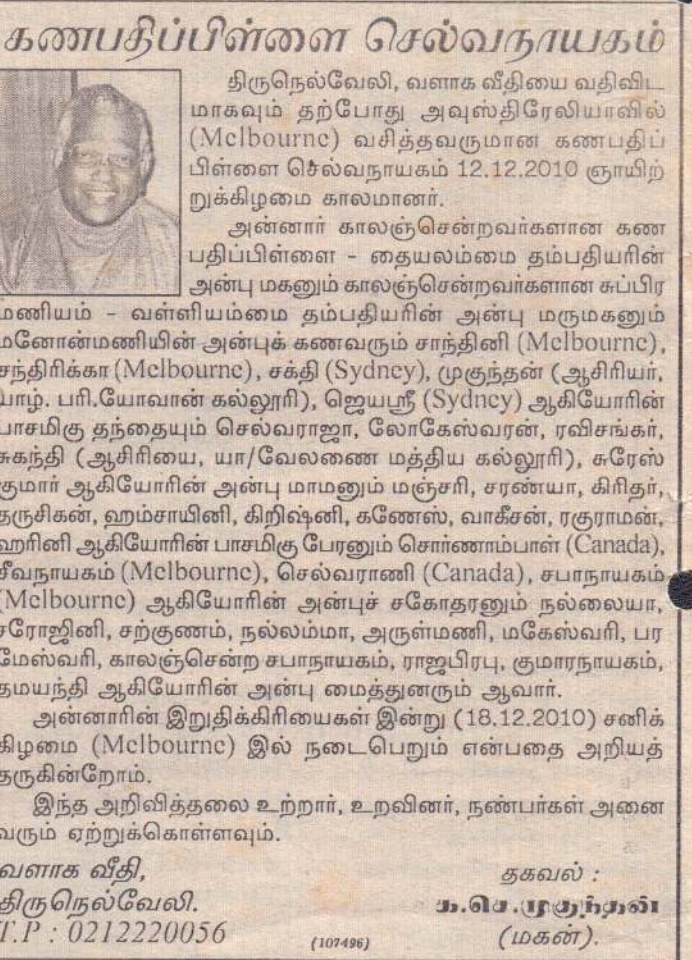 கணபதிப்பிள்ளை செல்வநாயகம்
திருநெல்வேலி, வளாக வீதியை வதிவிட
மாகவும் தற்போது அவுஸ்திரேலியாவில்
(Melbourne) வசித்தவருமான கணபதிப்
பிள்ளை செல்வநாயகம் 12.12.2010 ஞாயிற்
றுக்கிழமை காலமானார்.
அன்னார் காலஞ்சென்றவர்களான கண
பதிப்பிள்ளை - தையலம்மை தம்பதியரின்
அன்பு மகனும் காலஞ்சென்றவர்களான சுப்பிர
மணியம் - வள்ளியம்மை தம்பதியரின் அன்பு மருமகனும்
மனோன்மணியின் அன்புக் கணவரும் சாந்தினி (Melbourne),
சந்திரிக்கா (Melbourne), சக்தி (Sydney), முகுந்தன் (ஆசிரியர்,
யாழ். பரி.யோவான் கல்லூரி), ஜெயஸ்ரீ (Sydney) ஆகியோரின்
பாசமிகு தந்தையும் செல்வராஜா, லோகேஸ்வரன், ரவிசங்கர்,
சுகந்தி (ஆசிரியை, யா/வேலணை மத்திய கல்லூரி), சுரேஸ்
குமார் ஆகியோரின் அன்பு மாமனும் மஞ்சரி, சரண்யா, கிரிதர்,
தருசிகன், ஹம்சாயினி, கிறிஷ்னி, கணேஸ், வாகீசன், ரகுராமன்,
ஹரினி ஆகியோரின் பாசமிகு பேரனும் சொர்ணாம்பாள் (Canada),
சீவநாயகம் (Melbourne), செல்வராணி (Canada), சபாநாயகம்
(Melbourne) ஆகியோரின் அன்புச் சகோதரனும் நல்லையா,
சரோஜினி, சற்குணம், நல்லம்மா, அருள்மணி, மகேஸ்வரி, பர
மேஸ்வரி, காலஞ்சென்ற சபாநாயகம், ராஜபிரபு, குமாரநாயகம்,
தமயந்தி ஆகியோரின் அன்பு மைத்துனரும் ஆவார்.
அன்னாரின் இறுதிக்கிரியைகள் இன்று (18.12.2010) சனிக்
கிழமை (Melbourne) இல் நடைபெறும் என்பதை அறியத்
தருகின்றோம்.
இந்த அறிவித்தலை உற்றார், உறவினர், நண்பர்கள் அனை
வரும் ஏற்றுக்கொள்ளவும்.
வளாக வீதி,
திருநெல்வேலி.
T.P : 0212220056
(107496)
தகவல் :
க.செ.முகுந்தன்
(மகன்).